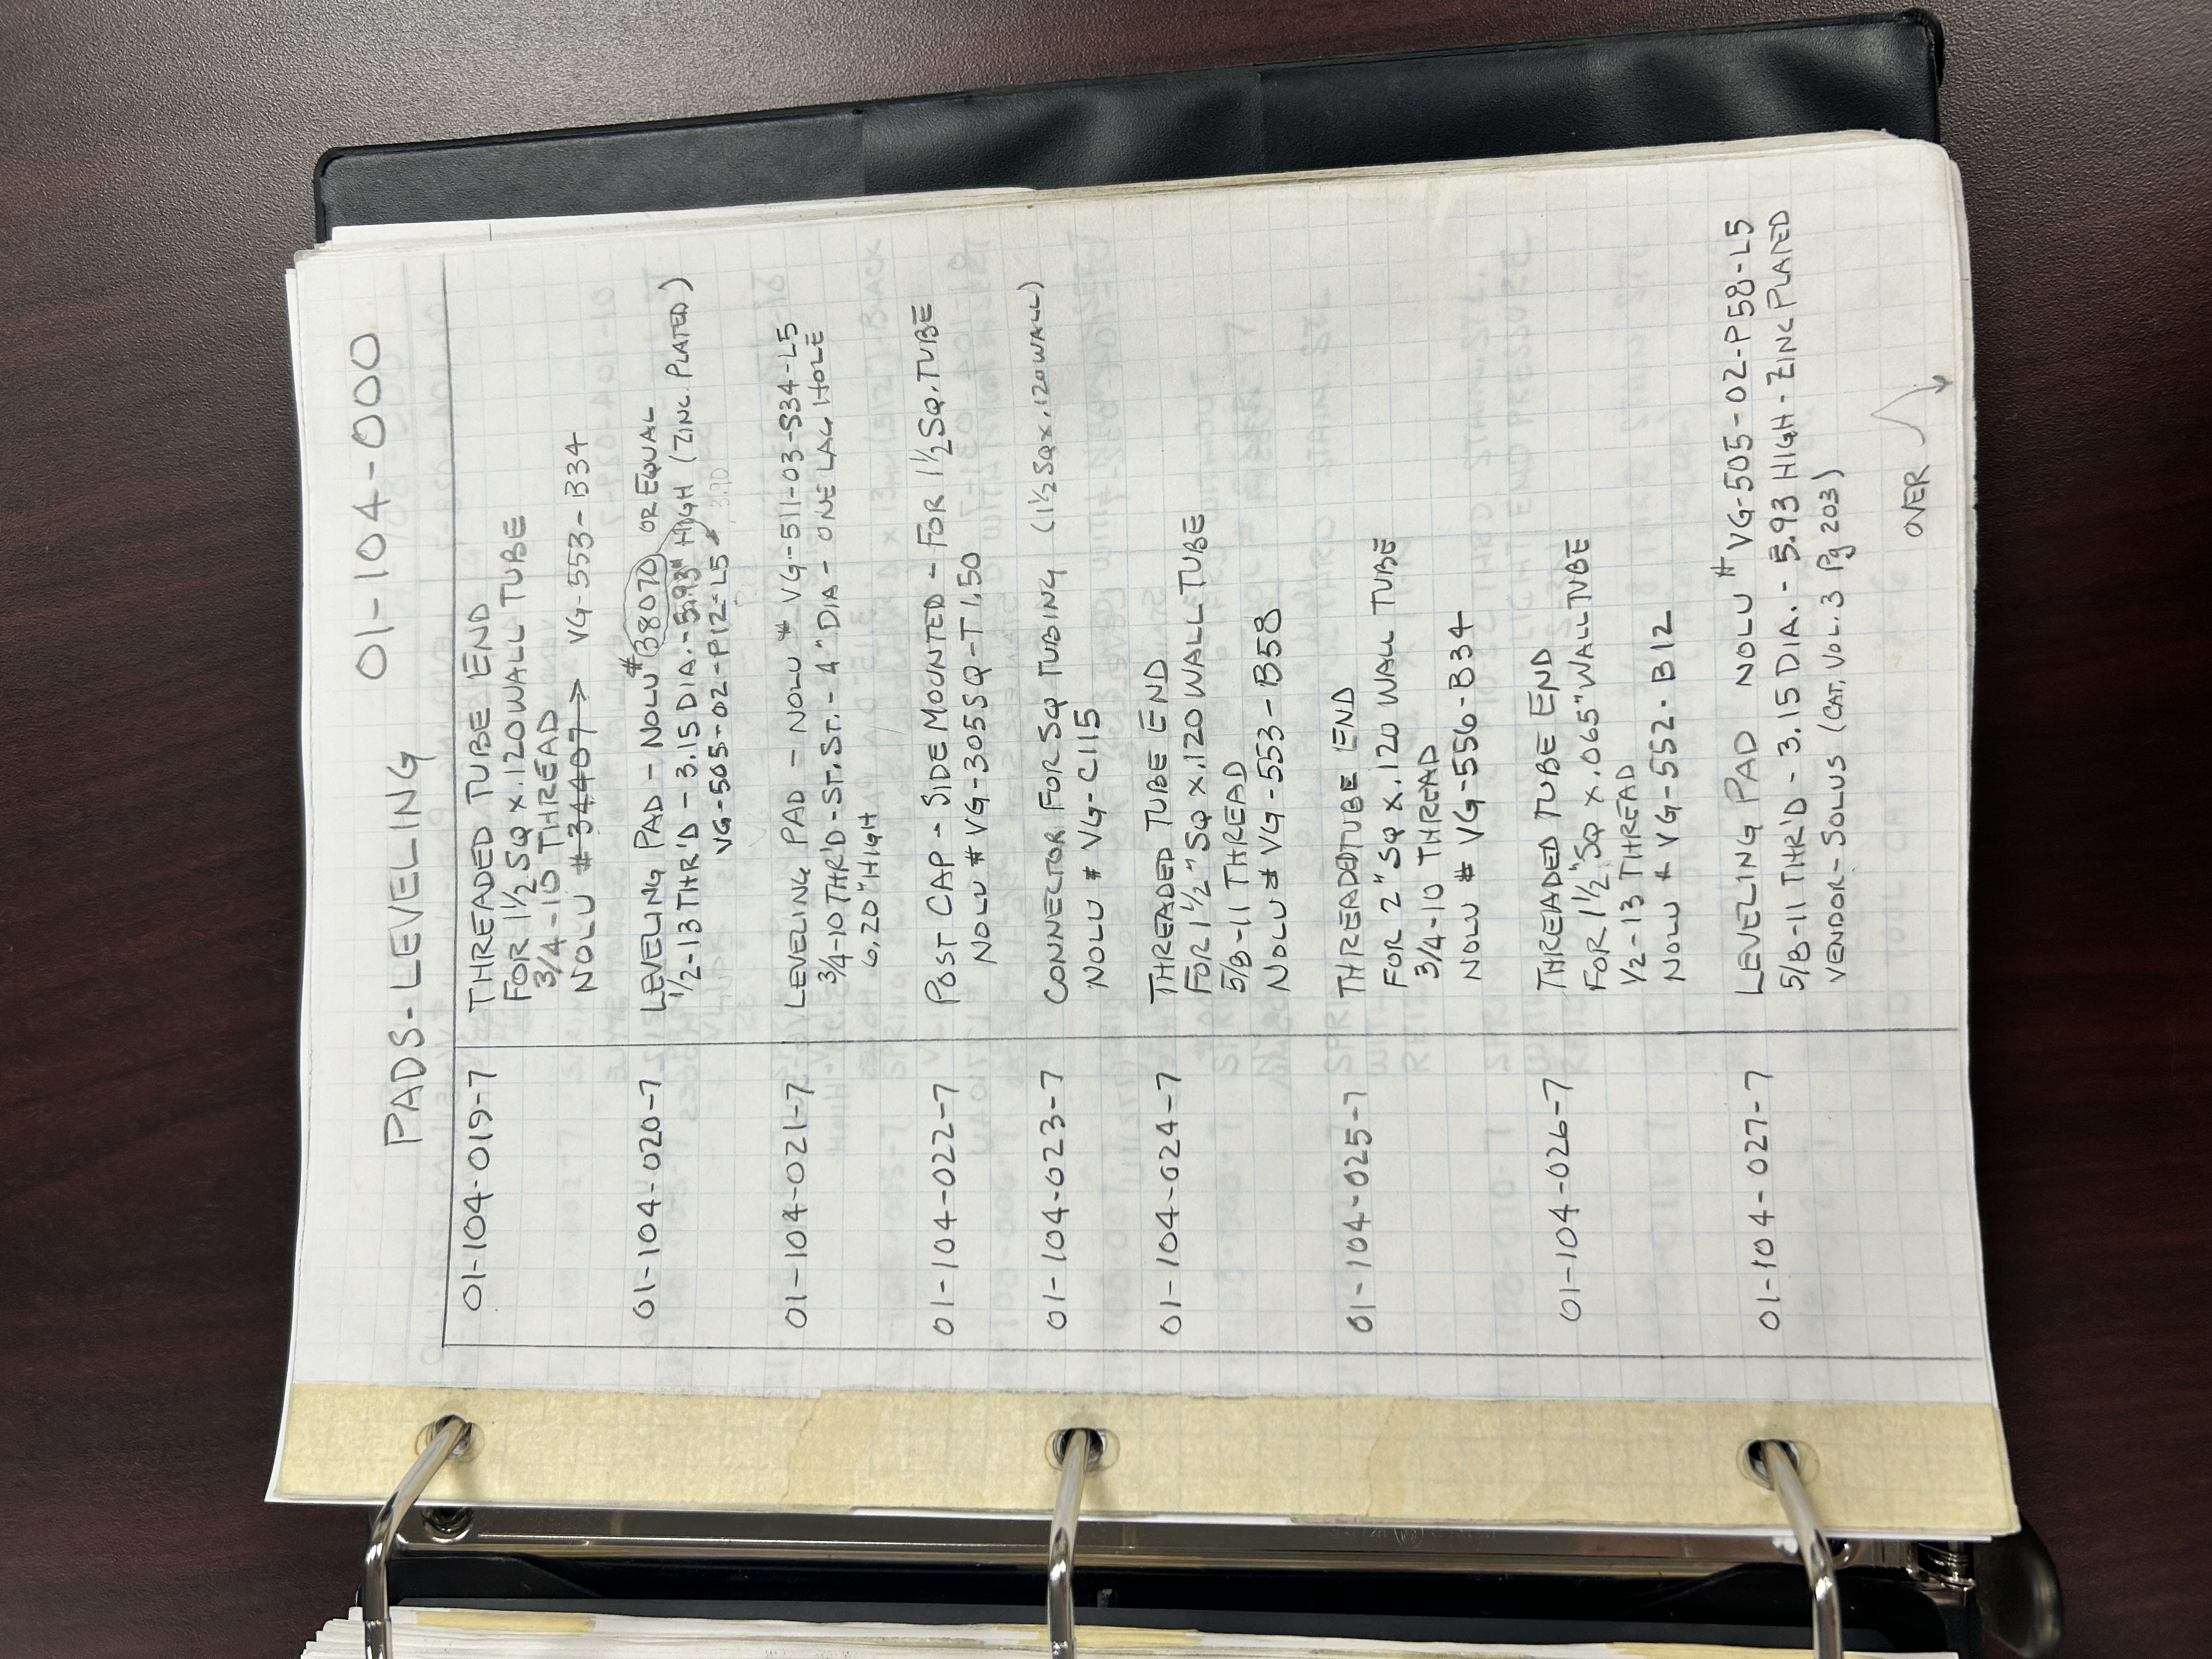 01-104-000
PADS-LEVELING
01-104-019-7 THREADED TUBE END
FOR 1 1/2 SQ x .120 WALL TUBE
3/4-10 THREAD
NOLU # 34407 → VG-553-B34
01-104-020-7 LEVELING PAD - NOLU # 38070 OR EQUAL
1/2-13 THR'D - 3.15 DIA. - 5.93" HIGH (ZINC PLATED)
VG-505-02-P12-L5 3.90
01-104-021-7 LEVELING PAD - NOLU # VG-511-03-S34-L5
3/4-10 THR'D - ST. ST. - 4" DIA - ONE LAG HOLE
6.20" HIGH
01-104-022-7 POST CAP - SIDE MOUNTED - FOR 1 1/2 SQ. TUBE
NOLU # VG-305SQ-T1.50
01-104-023-7 CONNECTOR FOR SQ TUBING (1 1/2 SQ x .120 WALL)
NOLU # VG-C115
01-104-024-7 THREADED TUBE END
FOR 1 1/2" SQ x .120 WALL TUBE
5/8-11 THREAD
NOLU # VG-553-B58
01-104-025-7 THREADED TUBE END
FOR 2" SQ x .120 WALL TUBE
3/4-10 THREAD
NOLU # VG-556-B34
01-104-026-7 THREADED TUBE END
FOR 1 1/2" SQ x .065" WALL TUBE
1/2-13 THREAD
NOLU # VG-552-B12
01-104-027-7 LEVELING PAD NOLU # VG-505-02-P58-L5
5/8-11 THR'D - 3.15 DIA. - 5.93 HIGH - ZINC PLATED
VENDOR - SOLUS (CAT. VOL. 3 Pg 203)
OVER